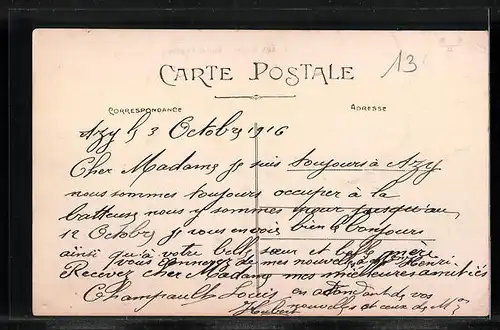 13
CARTE POSTALE
CORRESPONDANCE
ADRESSE
Azy le 3 Octobre 1916
Cher Madame je suis toujours à Azy
nous sommes toujours occuper à la
batteuse nous y sommes pour jusqu'au
12 Octobre je vous envoie bien le bonjours
ainsi qu'à votre belle sœur et belle mere
vous donnerez de mes nouvelles à Henri
Recevez cher Madame mes meilleures amitiés
Champault Louis en attendant de vos
nouvelles et ceux de Mr
Hubert